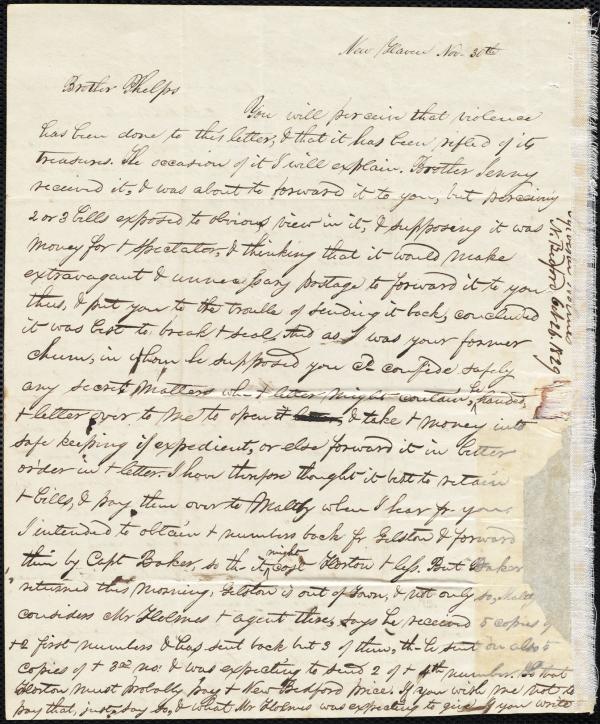 New Haven Nov. 30th
Brother Phelps
You will perceive that violence
has been done to this letter, & that it has been rifled of its
treasures. The occasion of it I will explain. Brother Jenny
received it, & was about to forward it to you, but perceiving
2 or 3 bills exposed to obvious view in it, & supposing it was
money for + Spectator, & thinking that it would make
extravagant & unnecessary postage to forward it to you
thus, & put you to the trouble of sending it back, concluded
it was best to break + seal, and as I was your former
chum, in whom he supposed you cd confide safely
any secret matters wh + letter might contain, he handed
+ letter over to me to open & take + money into
safe keeping if expedient, or else forward it in better
order in + letter. I have therefore thought it best to retain
+ bills, & pay them over to Maltby when I hear fr you.
I intended to obtain + numbers back fr Gelston & forward
them by Capt Baker, so th it might cost Horton + less. But Baker
returned this morning, Gelston is out of town, & not only so, Maltby
considers Mr Holmes + agent there, says he received 5 copies of
+ 2 first numbers & has sent back but 3 of them, th he sent on also 5
copies of + 3rd no. & was expecting to send 2 of + 4th number. So that
Horton must probably pay + New Bedford price. If you wish me not to
pay that, just say so, & what Mr Holmes was expecting to give if you write
N. Bedford Oct. 26. 1829